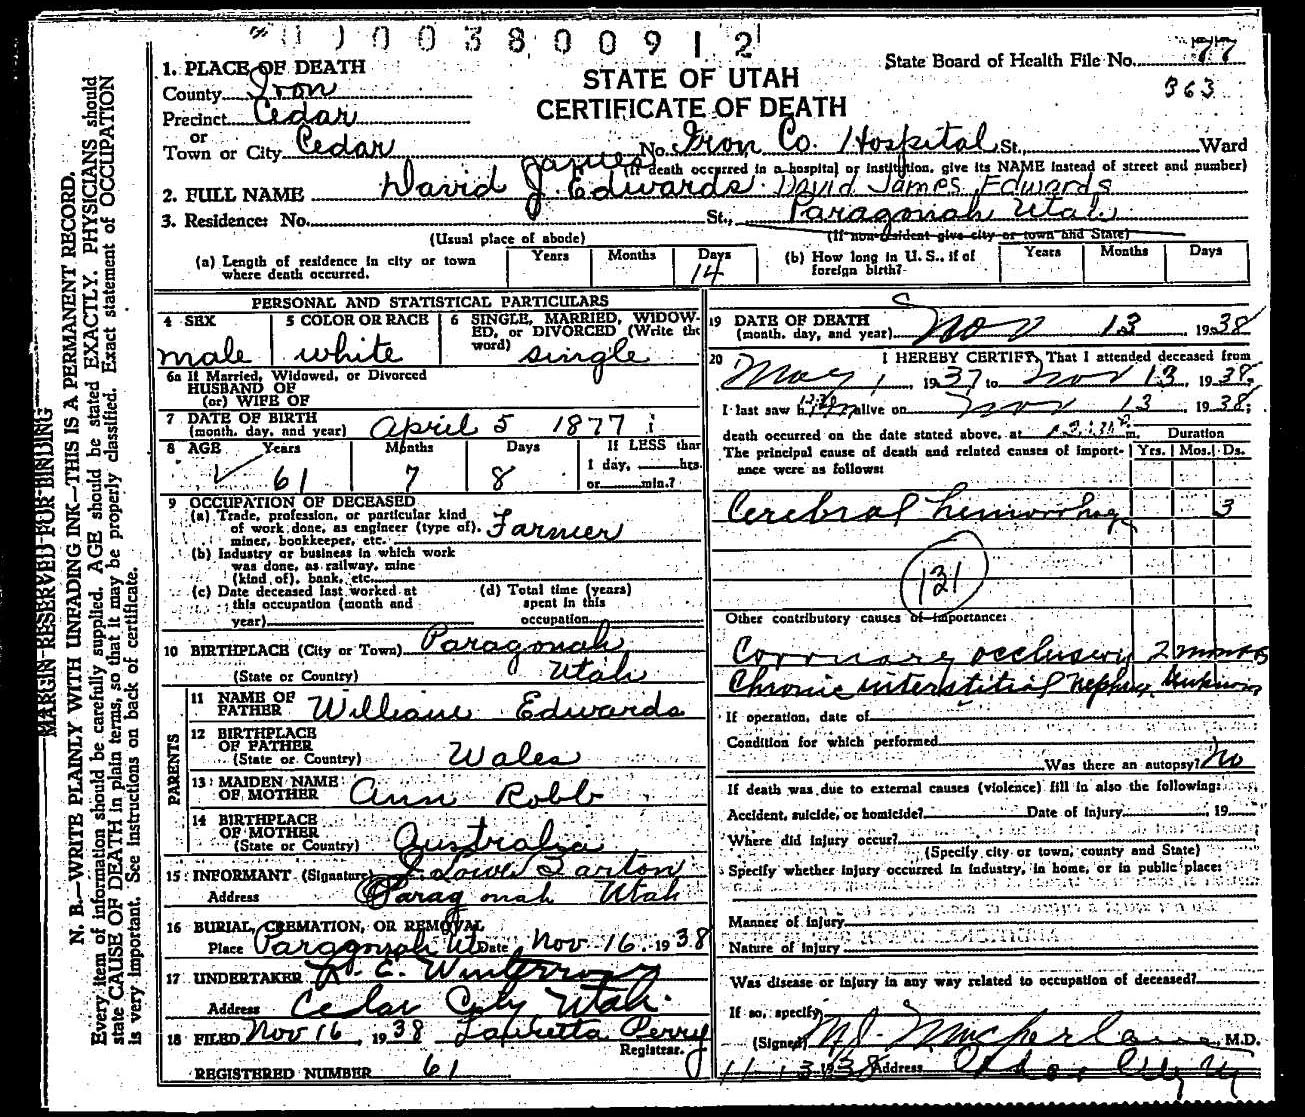 003800912
State Board of Health File No. 77
363
STATE OF UTAH
CERTIFICATE OF DEATH
1. PLACE OF DEATH
County Iron
Precinct Cedar
or
Town or City Cedar No. Iron Co. Hospital St., Ward
(If death occurred in a hospital or institution, give its NAME instead of street and number)
James
2. FULL NAME David J. Edwards David James Edwards
3. Residence: No. St., Paragonah Utah
(Usual place of abode) (If non-resident give city or town and State)
(a) Length of residence in city or town where death occurred. Years Months Days 14
(b) How long in U. S., if of foreign birth? Years Months Days
PERSONAL AND STATISTICAL PARTICULARS
4 SEX male
5 COLOR OR RACE white
6 SINGLE, MARRIED, WIDOWED, or DIVORCED (Write the word) single
6a If Married, Widowed, or Divorced
HUSBAND OF
(or) WIFE OF
7 DATE OF BIRTH
(month, day, and year) April 5 1877
8 AGE Years 61 Months 7 Days 8 If LESS than 1 day, hrs. or min.?
9 OCCUPATION OF DECEASED
(a) Trade, profession, or particular kind
of work done, as engineer (type of),
miner, bookkeeper, etc. Farmer
(b) Industry or business in which work
was done, as railway, mine
(kind of), bank, etc.
(c) Date deceased last worked at
this occupation (month and
year)
(d) Total time (years)
spent in this
occupation
10 BIRTHPLACE (City or Town) Paragonah
(State or Country) Utah
PARENTS
11 NAME OF
FATHER William Edwards
12 BIRTHPLACE
OF FATHER
(State or Country) Wales
13 MAIDEN NAME
OF MOTHER Ann Robb
14 BIRTHPLACE
OF MOTHER
(State or Country) Australia
15 INFORMANT (Signature) J. Lowe Barton
Address Paragonah Utah
16 BURIAL, CREMATION, OR REMOVAL
Place Paragonah Ut Date Nov 16 1938
17 UNDERTAKER
Address Cedar City Utah.
18 FILED Nov 16, 1938 Lauretta Perry
Registrar.
REGISTERED NUMBER 61
19 DATE OF DEATH
(month, day, and year) Nov 13 1938
20 I HEREBY CERTIFY, That I attended deceased from
May 1, 1937 to Nov 13, 1938;
I last saw him alive on Nov 13 1938;
death occurred on the date stated above, at m. Duration
The principal cause of death and related causes of importance were as follows: Yrs. Mos. Ds.
Cerebral hemorrhage 3
131
Other contributory causes of importance:
Coronary occlusion 2 months
Chronic interstitial Nephri. Unknown
If operation, date of
Condition for which performed
Was there an autopsy? No
If death was due to external causes (violence) fill in also the following:
Accident, suicide, or homicide? Date of injury 19
Where did injury occur?
(Specify city or town, county and State)
Specify whether injury occurred in industry, in home, or in public place:
Manner of injury
Nature of injury
Was disease or injury in any way related to occupation of deceased?
If so, specify
(Signed) M.D.
11-13-1938 Address Cedar City Ut
MARGIN RESERVED FOR BINDING
N. B.—WRITE PLAINLY WITH UNFADING INK—THIS IS A PERMANENT RECORD.
Every item of information should be carefully supplied. AGE should be stated EXACTLY. PHYSICIANS should
state CAUSE OF DEATH in plain terms, so that it may be properly classified. Exact statement of OCCUPATION
is very important. See instructions on back of certificate.